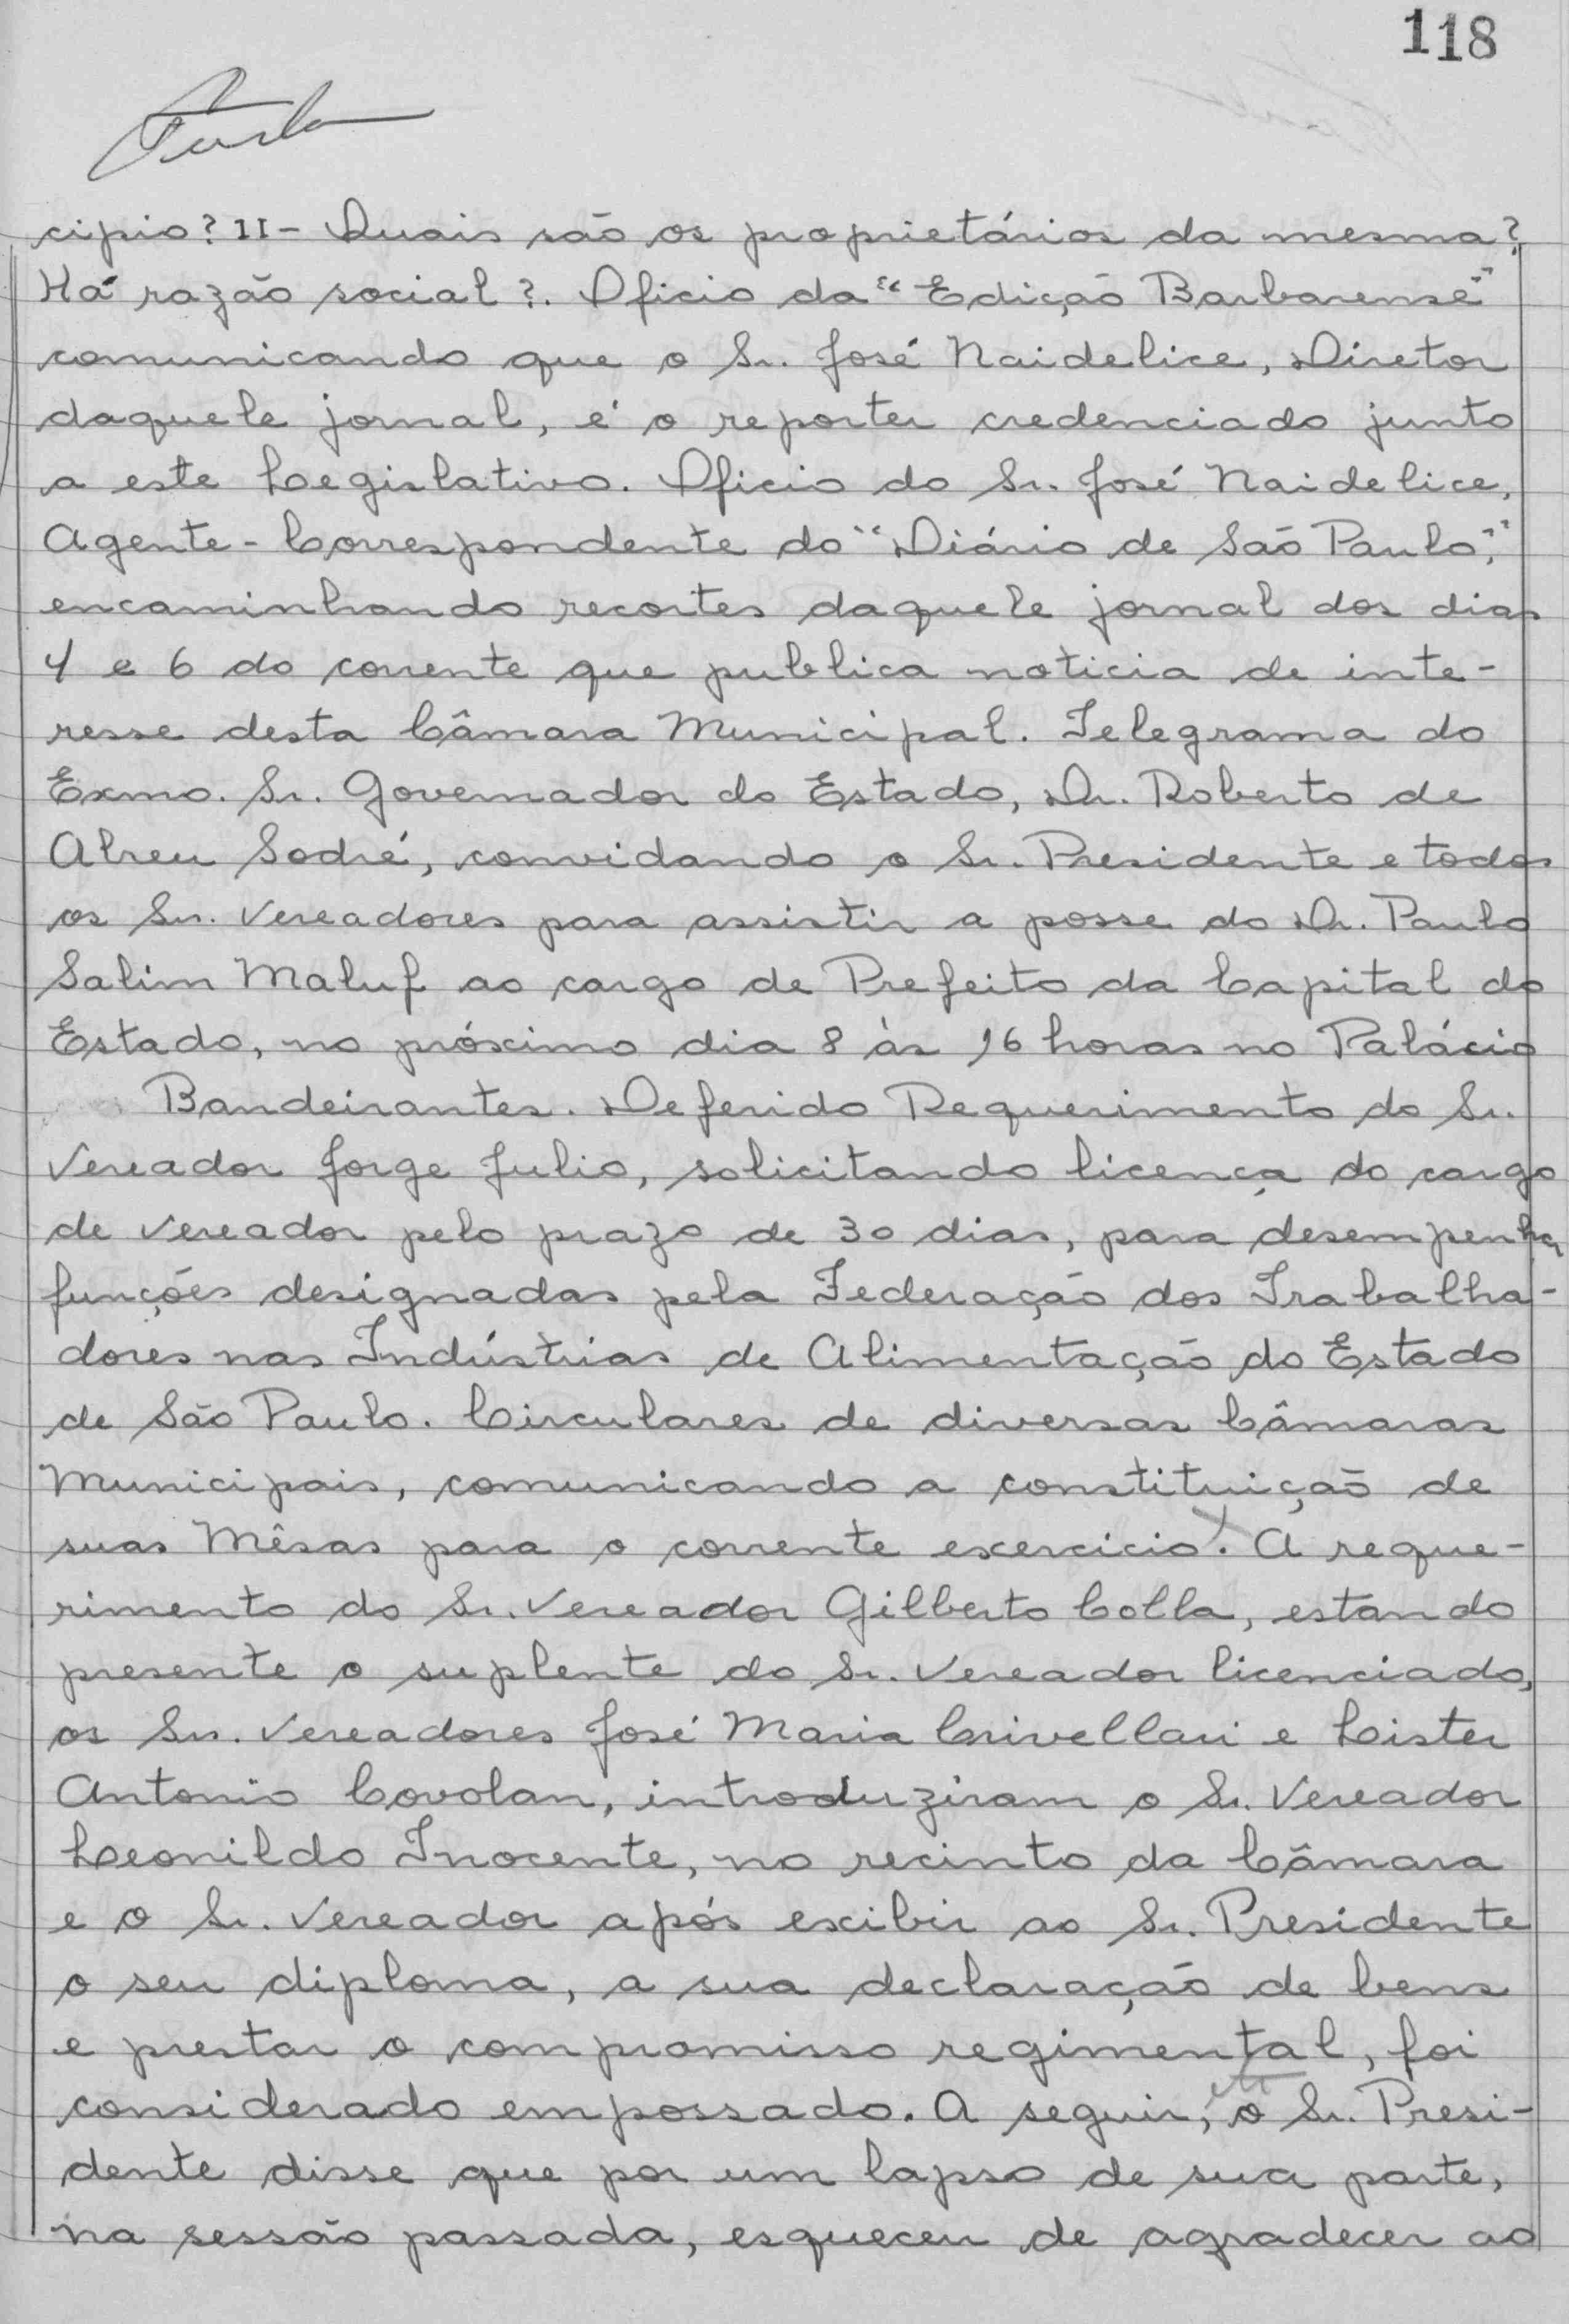 118
cipio? II - Quais são os proprietários da mesma?
Há razão social?. Oficio da "Edição Barbarense"
comunicando que o Sr. José Naidelice, Diretor
daquele jornal, é o reporter credenciado junto
a este Legislativo. Oficio do Sr. José Naidelice,
Agente-Correspondente do "Diário de São Paulo",
encaminhando recortes daquele jornal dos dias
4 e 6 do corrente que publica noticia de inte-
resse desta Câmara Municipal. Telegrama do
Exmo. Sr. Governador do Estado, Dr. Roberto de
Abreu Sodré, convidando o Sr. Presidente e todos
os Srs. Vereadores para assistir a posse do Dr. Paulo
Salim Maluf ao cargo de Prefeito da Capital do
Estado, no próximo dia 8 às 16 horas no Palácio
Bandeirantes. Deferido Requerimento do Sr.
Vereador Jorge Julio, solicitando licença do cargo
de Vereador pelo prazo de 30 dias, para desempenhar
funções designadas pela Federação dos Trabalha-
dores nas Indústrias de Alimentação do Estado
de São Paulo. Circulares de diversas Câmaras
Municipais, comunicando a constituição de
suas Mêsas para o corrente exercicio. A reque-
rimento do Sr. Vereador Gilberto Colla, estando
presente o suplente do Sr. Vereador licenciado,
os Srs. Vereadores José Maria Crivellari e Lister
Antonio Covolan, introduziram o Sr. Vereador
Leonildo Inocente, no recinto da Câmara
e o Sr. Vereador após exibir ao Sr. Presidente
o seu diploma, a sua declaração de bens
e prestar o compromisso regimental, foi
considerado empossado. A seguir, o Sr. Presi-
dente disse que por um lapso de sua parte,
na sessão passada, esqueceu de agradecer ao